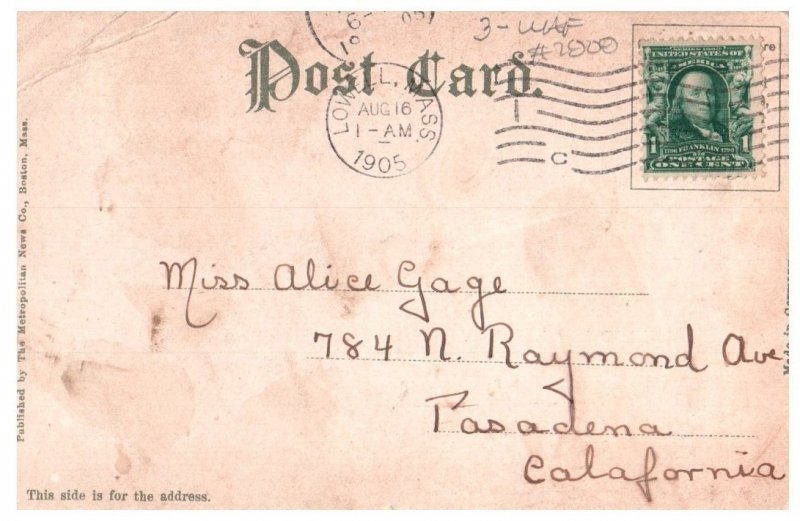 Post Card.
LOWELL, MASS.
AUG 16
1-AM
1905
3-UUF
#2000
C
SERIES 1902
UNITED STATES OF
AMERICA
1706 FRANKLIN 1790
1 POSTAGE 1
ONE CENT
Miss Alice Gage
784 N. Raymond Ave
Pasadena
Calafornia
Published by The Metropolitan News Co., Boston, Mass.
Made in Germany
This side is for the address.